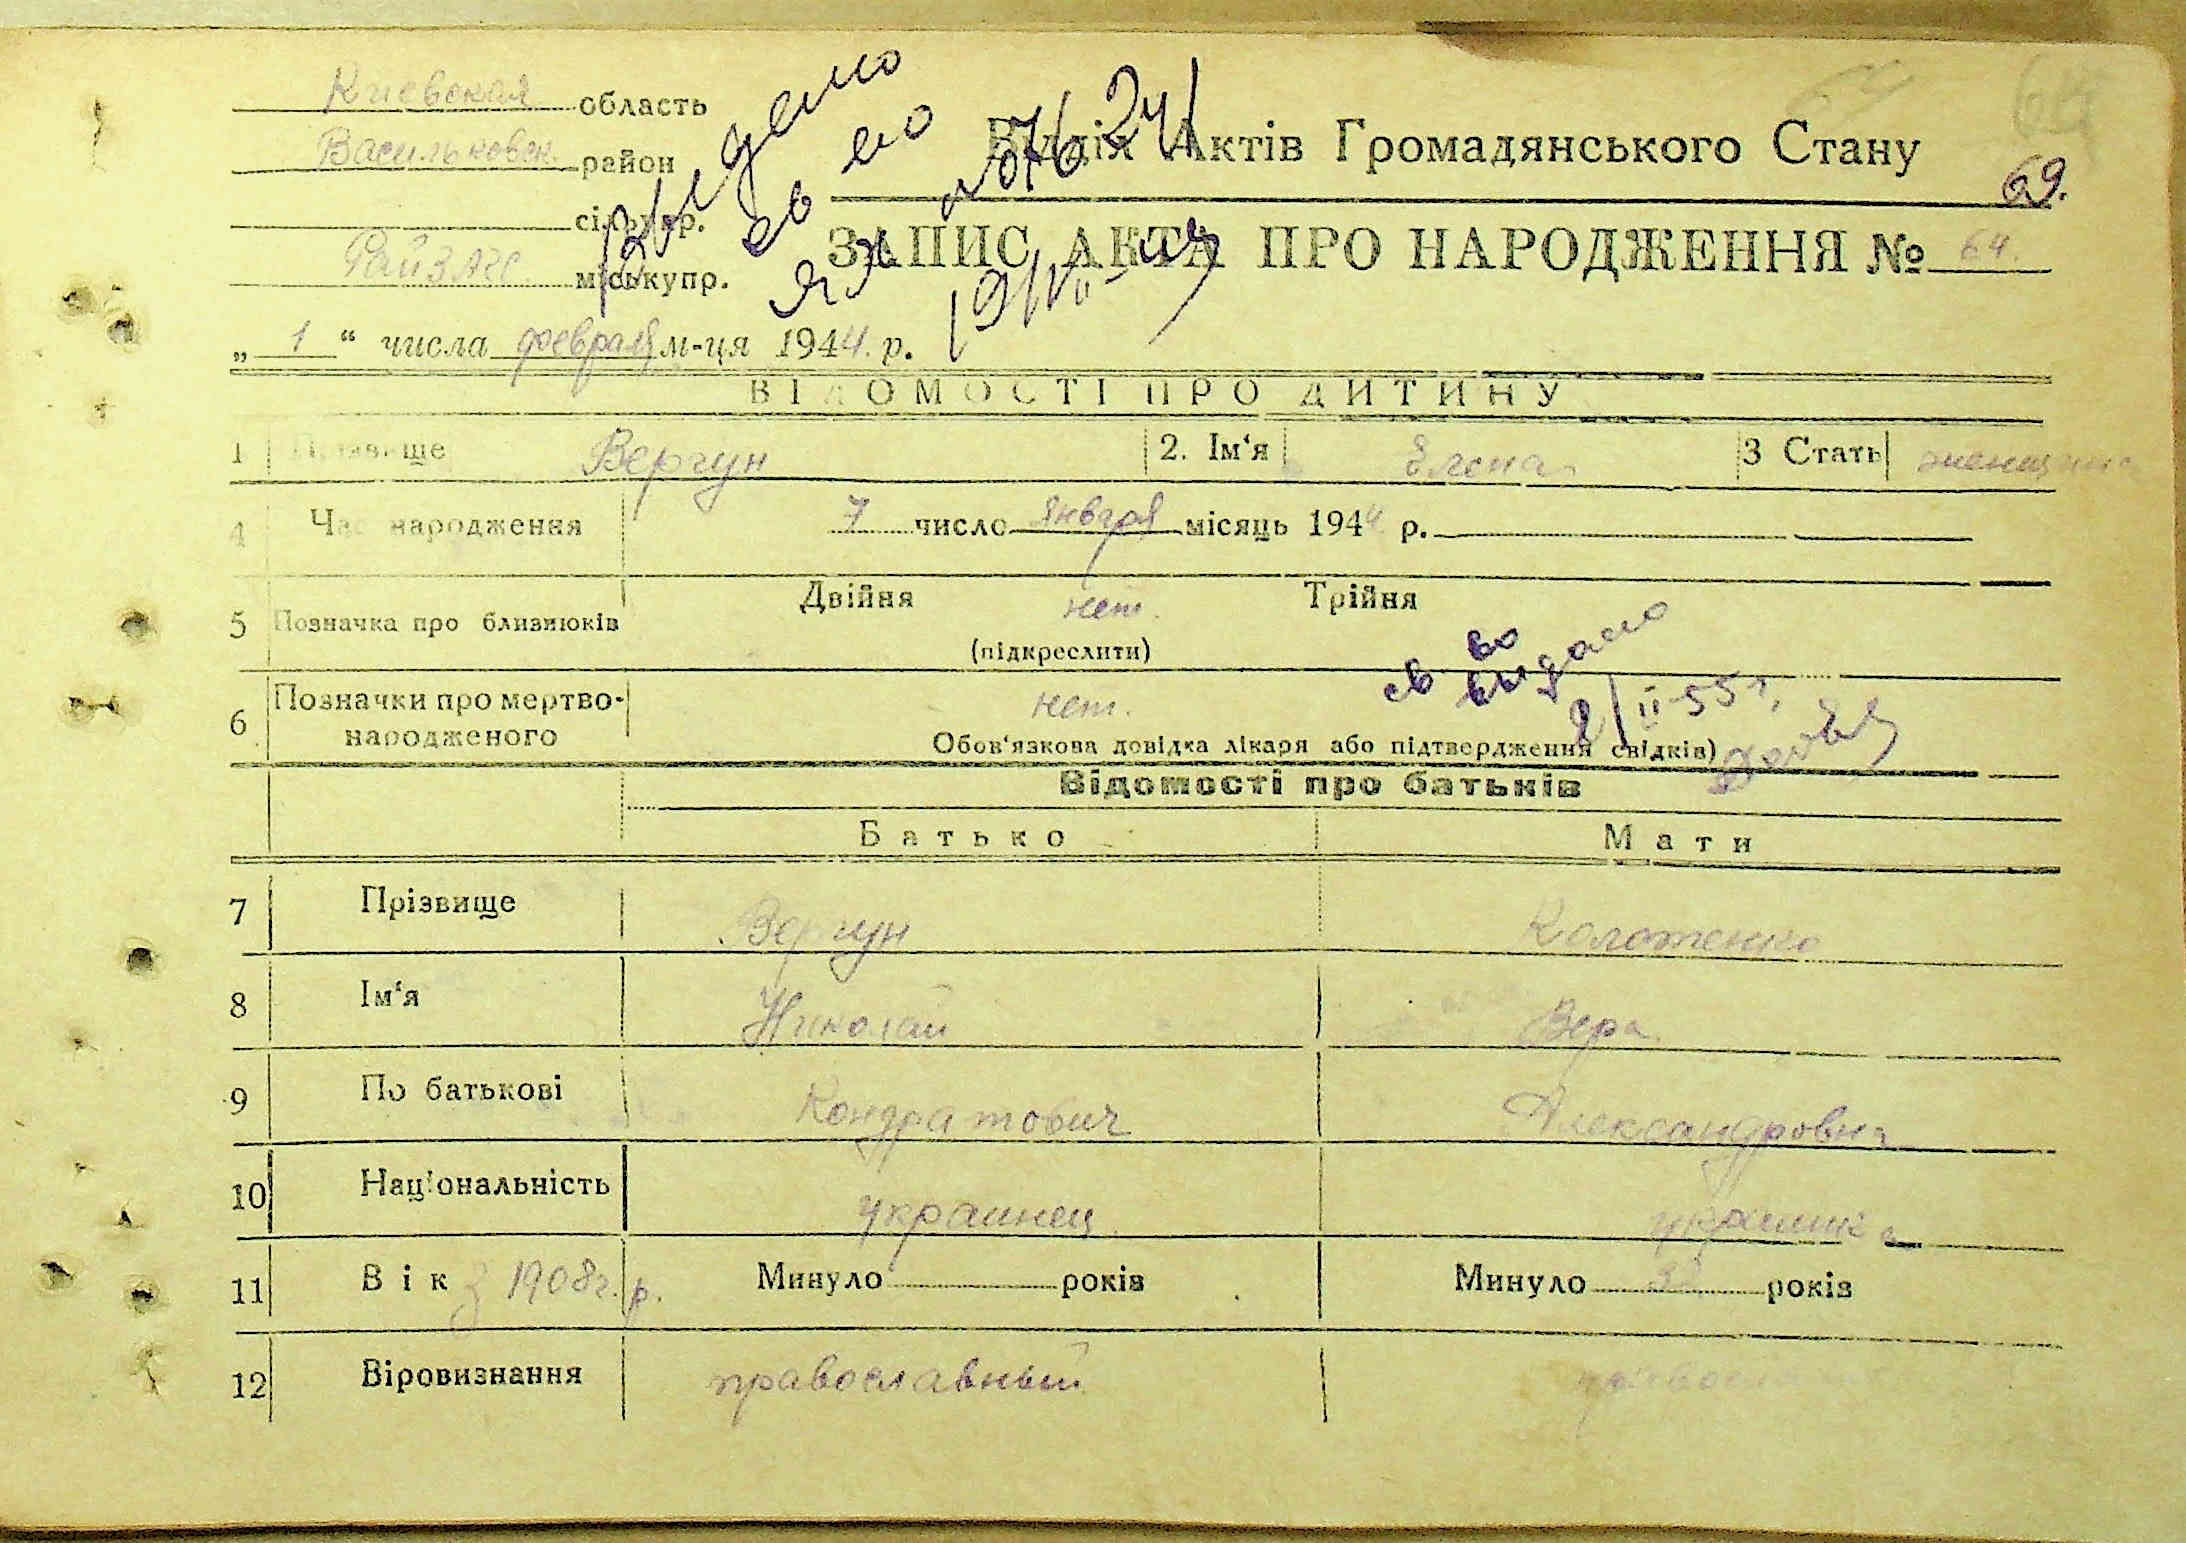 Киевская область
Васильковск. район
сільупр.
РайЗАГС міськупр.
Відділ Актів Громадянського Стану
69.
ЗАПИС АКТА ПРО НАРОДЖЕННЯ № 64.
„ 1 “ числа февраля м-ця 1944. р.
ВІДОМОСТІ ПРО ДИТИНУ
1 Прізвище Вергун 2. Ім‘я Елена 3 Стать женщина
4 Час народження 7 число января місяць 1944 р.
5 Позначка про близнюків Двійня нет. Трійня
(підкреслити)
св во выдано
6 Позначки про мертво-народженого нет.
2/II-55 г.
Обов‘язкова довідка лікаря або підтвердження свідків)
Відомості про батьків
Батько Мати
7 Прізвище Вергун Колотенко
8 Ім‘я Николай Вера
9 По батькові Кондратович Александровна
10 Національність украинец украинка
11 Вік з 1908 г. р. Минуло років Минуло 32 років
12 Віровизнання православный